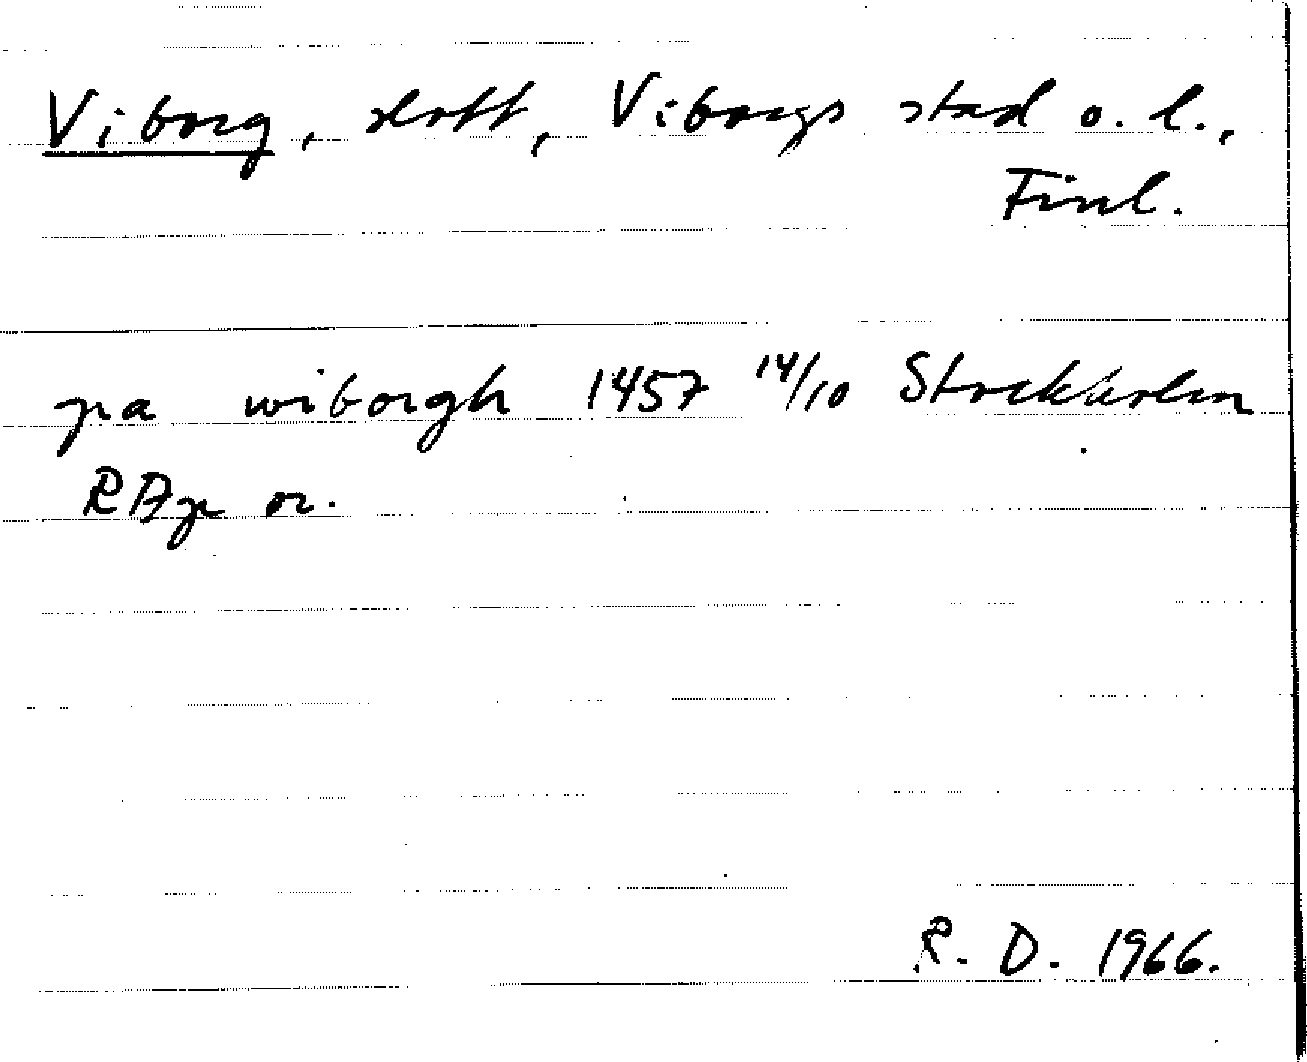 Viborg, slott, Viborgs stad o. l.,
Finl.
pa wiborgh 1457 14/10 Stockholm
RAp or.
R. D. 1966.